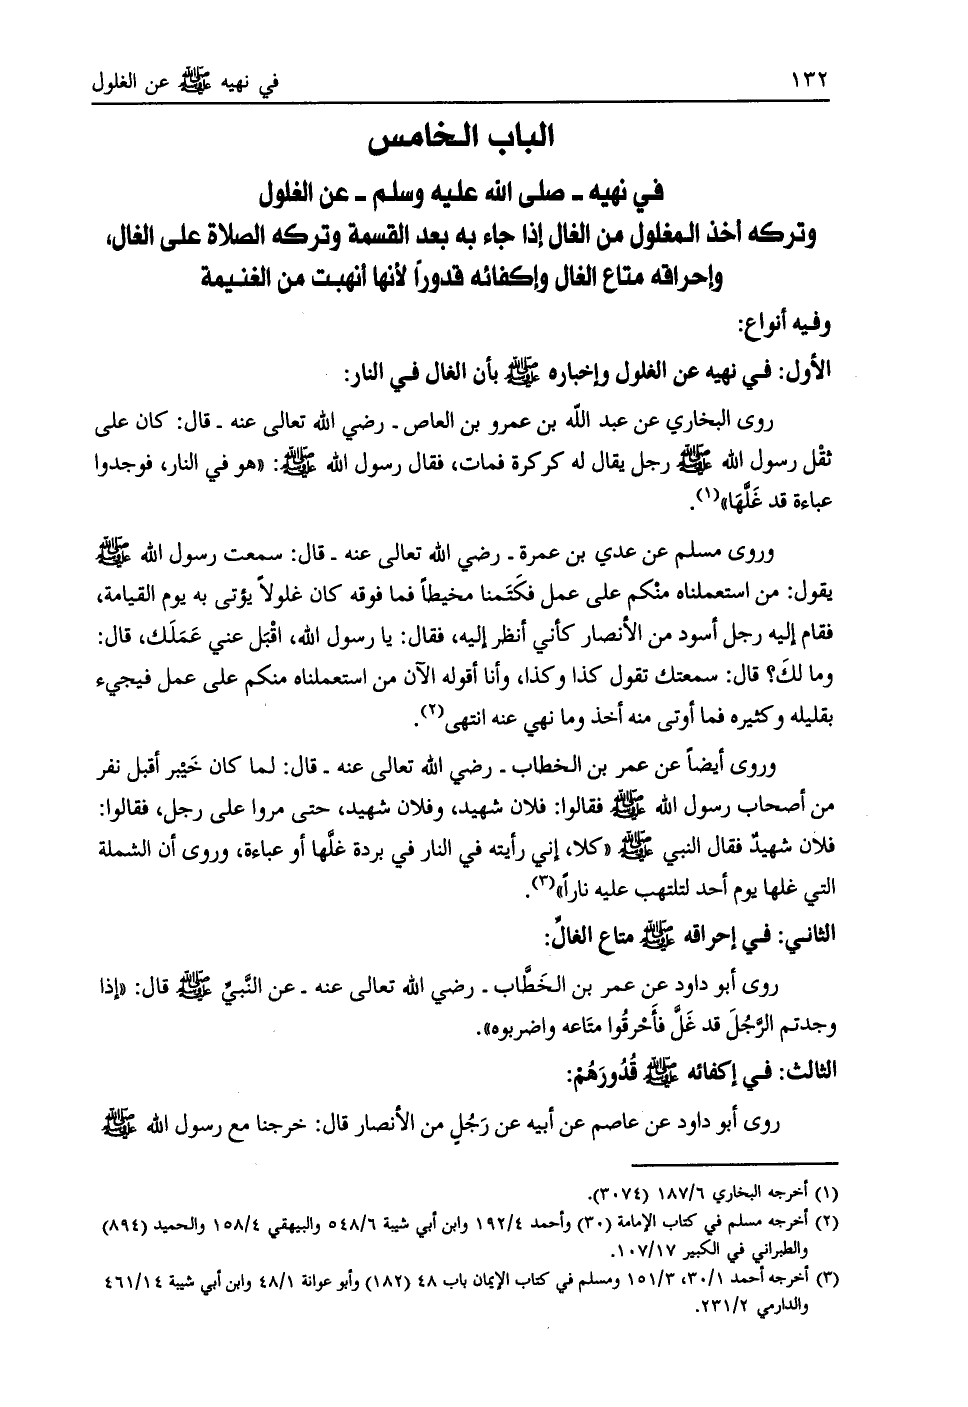 ١٣٢ في نهيه ﷺ عن الغلول
الباب الخامس
في نهيه ـ صلى الله عليه وسلم ـ عن الغلول
وتركه أخذ المغلول من الغال إذا جاء به بعد القسمة وتركه الصلاة على الغال،
وإحراقه متاع الغال وإكفائه قدوراً لأنها أنهبت من الغنيمة
وفيه أنواع:
الأول: في نهيه عن الغلول وإخباره ﷺ بأن الغال في النار:
روى البخاري عن عبد اللّه بن عمرو بن العاص ـ رضي الله تعالى عنه ـ قال: كان على
ثقْل رسول الله ﷺ رجل يقال له كركرة فمات، فقال رسول الله ﷺ: «هو في النار، فوجدوا
عباءة قد غَلَّهَا»(١).
وروى مسلم عن عدي بن عمرة ـ رضي الله تعالى عنه ـ قال: سمعت رسول الله ﷺ
يقول: من استعملناه منْكم على عمل فكَتَمنا مخيطاً فما فوقه كان غلولاً يؤتى به يوم القيامة،
فقام إليه رجل أسود من الأنصار كأني أنظر إليه، فقال: يا رسول الله، اقْبَل عني عَمَلَك، قال:
وما لكَ؟ قال: سمعتك تقول كذا وكذا، وأنا أقوله الآن من استعملناه منكم على عمل فيجيء
بقليله وكثيره فما أوتى منه أخذ وما نهي عنه انتهى(٢).
وروى أيضاً عن عمر بن الخطاب ـ رضي الله تعالى عنه ـ قال: لما كان خَيْبر أقبل نفر
من أصحاب رسول الله ﷺ فقالوا: فلان شهيد، وفلان شهيد، حتى مروا على رجل، فقالوا:
فلان شهيدٌ فقال النبي ﷺ «كلا، إني رأيته في النار في بردة غلَّها أو عباءة، وروى أن الشملة
التي غلها يوم أحد لتلتهب عليه ناراً»(٣).
الثاني: في إحراقه ﷺ متاع الغالِّ:
روى أبو داود عن عمر بن الخَطَّاب ـ رضي الله تعالى عنه ـ عن النَّبيِّ ﷺ قال: «إذا
وجدتم الرَّجُلَ قد غَلَّ فأَحْرقُوا متَاعه واضربوه».
الثالث: في إكفائه ﷺ قُدُورَهُمْ:
روى أبو داود عن عاصم عن أبيه عن رَجُلٍ من الأنصار قال: خرجنا مع رسول الله ﷺ
(١) أخرجه البخاري ١٨٧/٦ (٣٠٧٤).
(٢) أخرجه مسلم في كتاب الإمامة (٣٠) وأحمد ١٩٢/٤ وابن أبي شيبة ٥٤٨/٦ والبيهقي ١٥٨/٤ والحميد (٨٩٤)
والطبراني في الكبير ١٠٧/١٧.
(٣) أخرجه أحمد ٣٠/١، ١٥١/٣ ومسلم في كتاب الإيمان باب ٤٨ (١٨٢) وأبو عوانة ٤٨/١ وابن أبي شيبة ٤٦١/١٤
والدارمي ٢٣١/٢.